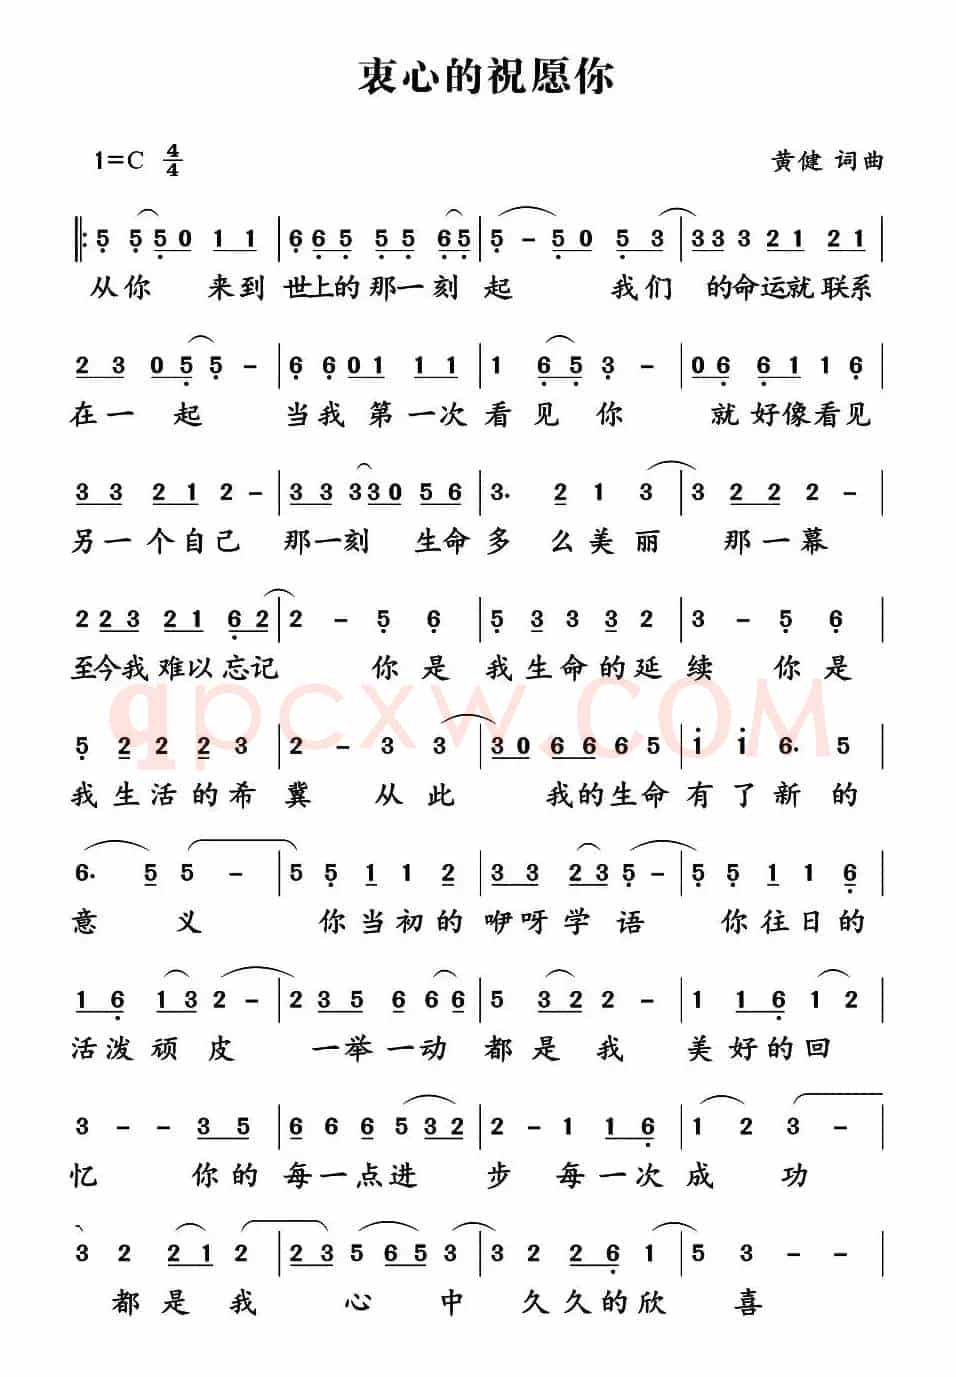 衷心的祝愿你
1=C 4/4 黄健 词曲
‖: 5 5 5 0 1 1 | 6 6 5 5 5 6 5 | 5 - 5 0 5 3 | 3 3 3 2 1 2 1 |
从你 来到 世上的那一刻 起 我们 的命运就联系
2 3 0 5 5 - | 6 6 0 1 1 1 | 1 6 5 3 - | 0 6 6 1 1 6 |
在一 起 当我 第一次看见 你 就好像看见
3 3 2 1 2 - | 3 3 3 3 3 0 5 6 | 3. 2 1 3 | 3 2 2 2 - |
另一个自己 那一刻 生命多 么美丽 那一幕
2 2 3 2 1 6 2 | 2 - 5 6 | 5 3 3 3 2 | 3 - 5 6 |
至今我难以忘记 你是 我生命的延 续 你是
5 2 2 2 3 | 2 - 3 3 | 3 0 6 6 6 5 | 1 1 6. 5 |
qpcxw.COM
我生活的希 冀 从此 我的生命有了新的
6. 5 5 - | 5 5 1 1 2 | 3 3 2 3 5 - | 5 5 1 1 6 |
意 义 你当初的 咿呀学语 你往日的
1 6 1 3 2 - | 2 3 5 6 6 6 | 5 3 2 2 - | 1 1 6 1 2 |
活泼顽皮 一举一动 都是我 美好的回
3 - - 3 5 | 6 6 6 5 3 2 | 2 - 1 1 6 | 1 2 3 - |
忆 你的 每一点进 步 每一次 成功
3 2 2 1 2 | 2 3 5 6 5 3 | 3 2 2 6 1 | 5 3 - - |
都是我 心中 久久的欣 喜